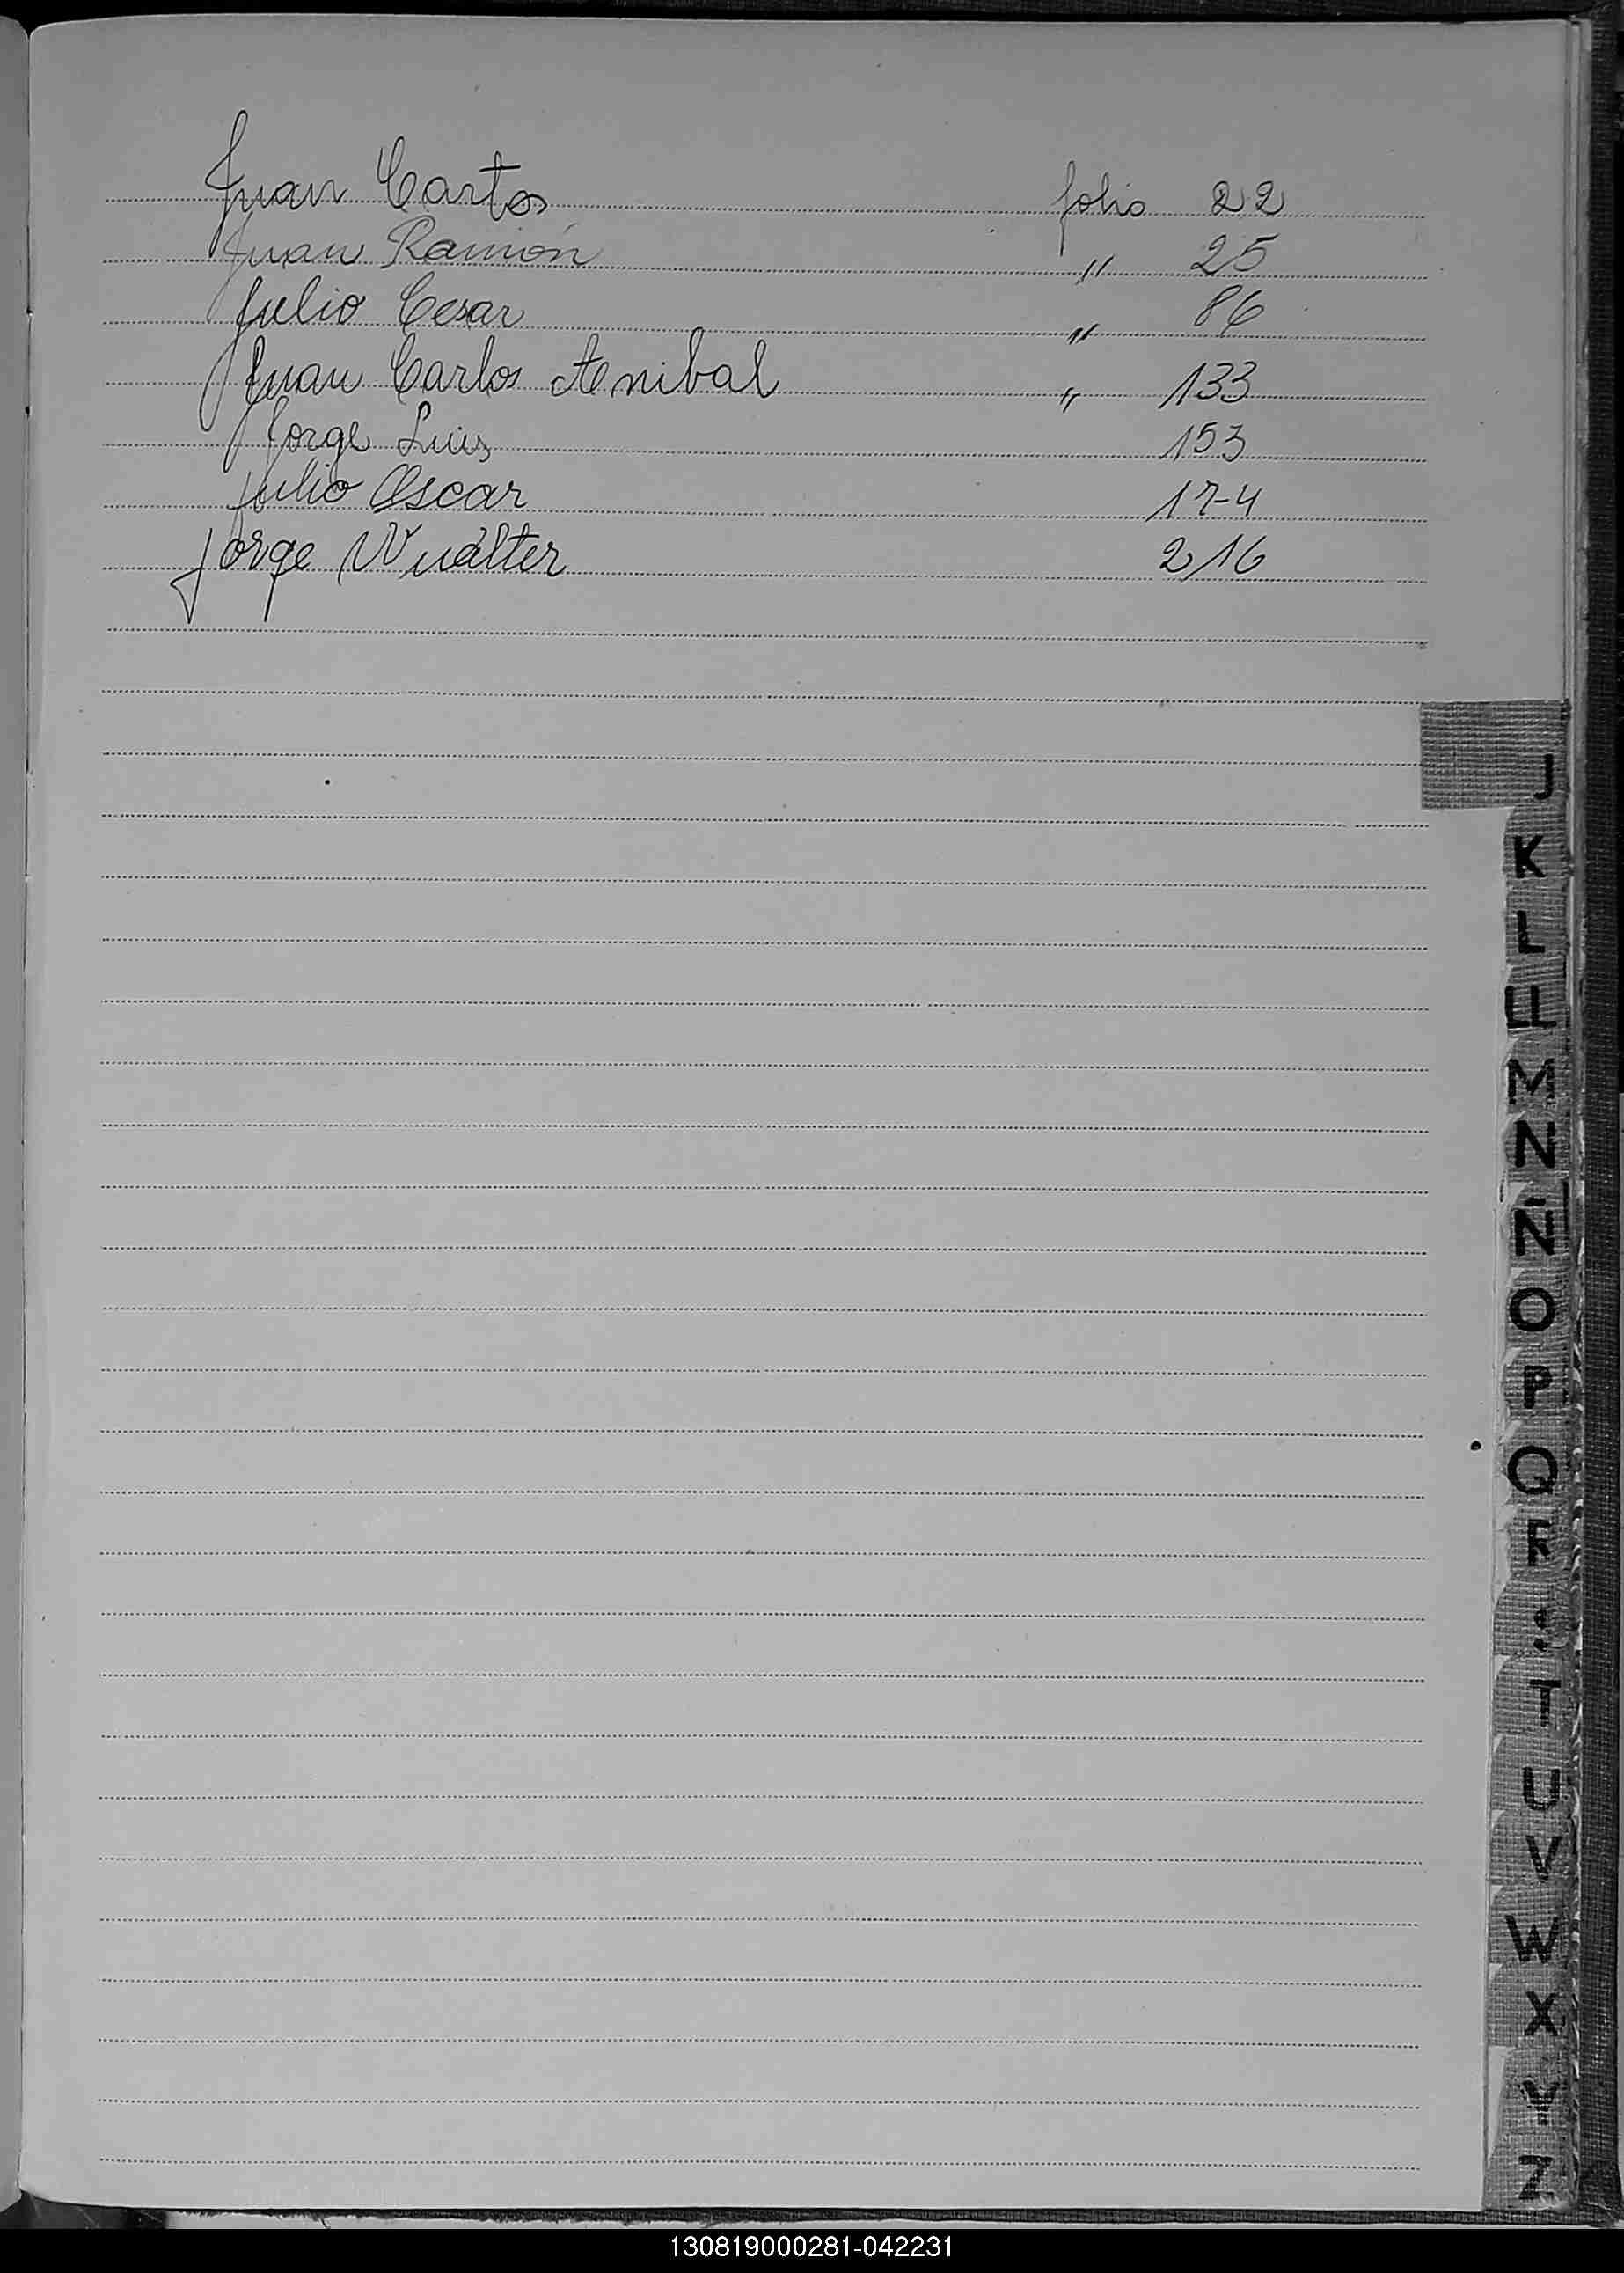 Juan Carlos folio 22
Juan Ramón " 25
Julio Cesar " 86
Juan Carlos Anibal " 133
Jorge Luis 153
Julio Oscar 174
Jorge Wuálter 216
J
K
L
LL
M
N
Ñ
O
P
Q
R
T
U
V
W
X
Y
Z
130819000281-042231